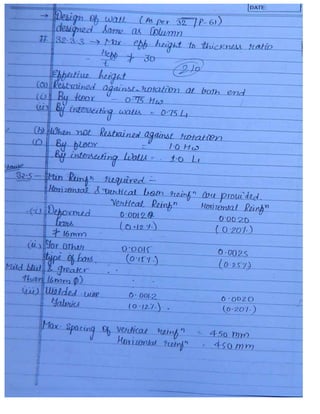 DATE
→ Design of wall (As per 32 / P-61)
designed same as Column
# 32.2.3 → Max eff height to thickness ratio
Heff / t ≯ 30
210
Effective height
(a) Restrained against rotation at both end
(i) By floor = 0.75 Hw
(ii) By intersecting walls = 0.75 L1
(b) When not Restrained against rotation
(i) By floor = 1.0 Hw
By intersecting walls = 1.0 L1
32.5 - Min Reinfⁿ required -
Horizontal & vertical both reinfⁿ are provided.
Vertical Reinfⁿ Horizontal Reinfⁿ
(i) Deformed 0.0012 0.0020
bars (0.12%) (0.20%)
≯ 16mm
(ii) For other 0.0015 0.0025
type of bars. (0.15%) (0.25%)
Mild & greater
than 16mm ϕ)
(iii) Welded wire 0.0012 0.0020
Fabrics (0.12%). (0.20%)
Max. Spacing of vertical reinfⁿ = 450 mm
Horizontal reinfⁿ = 450 mm